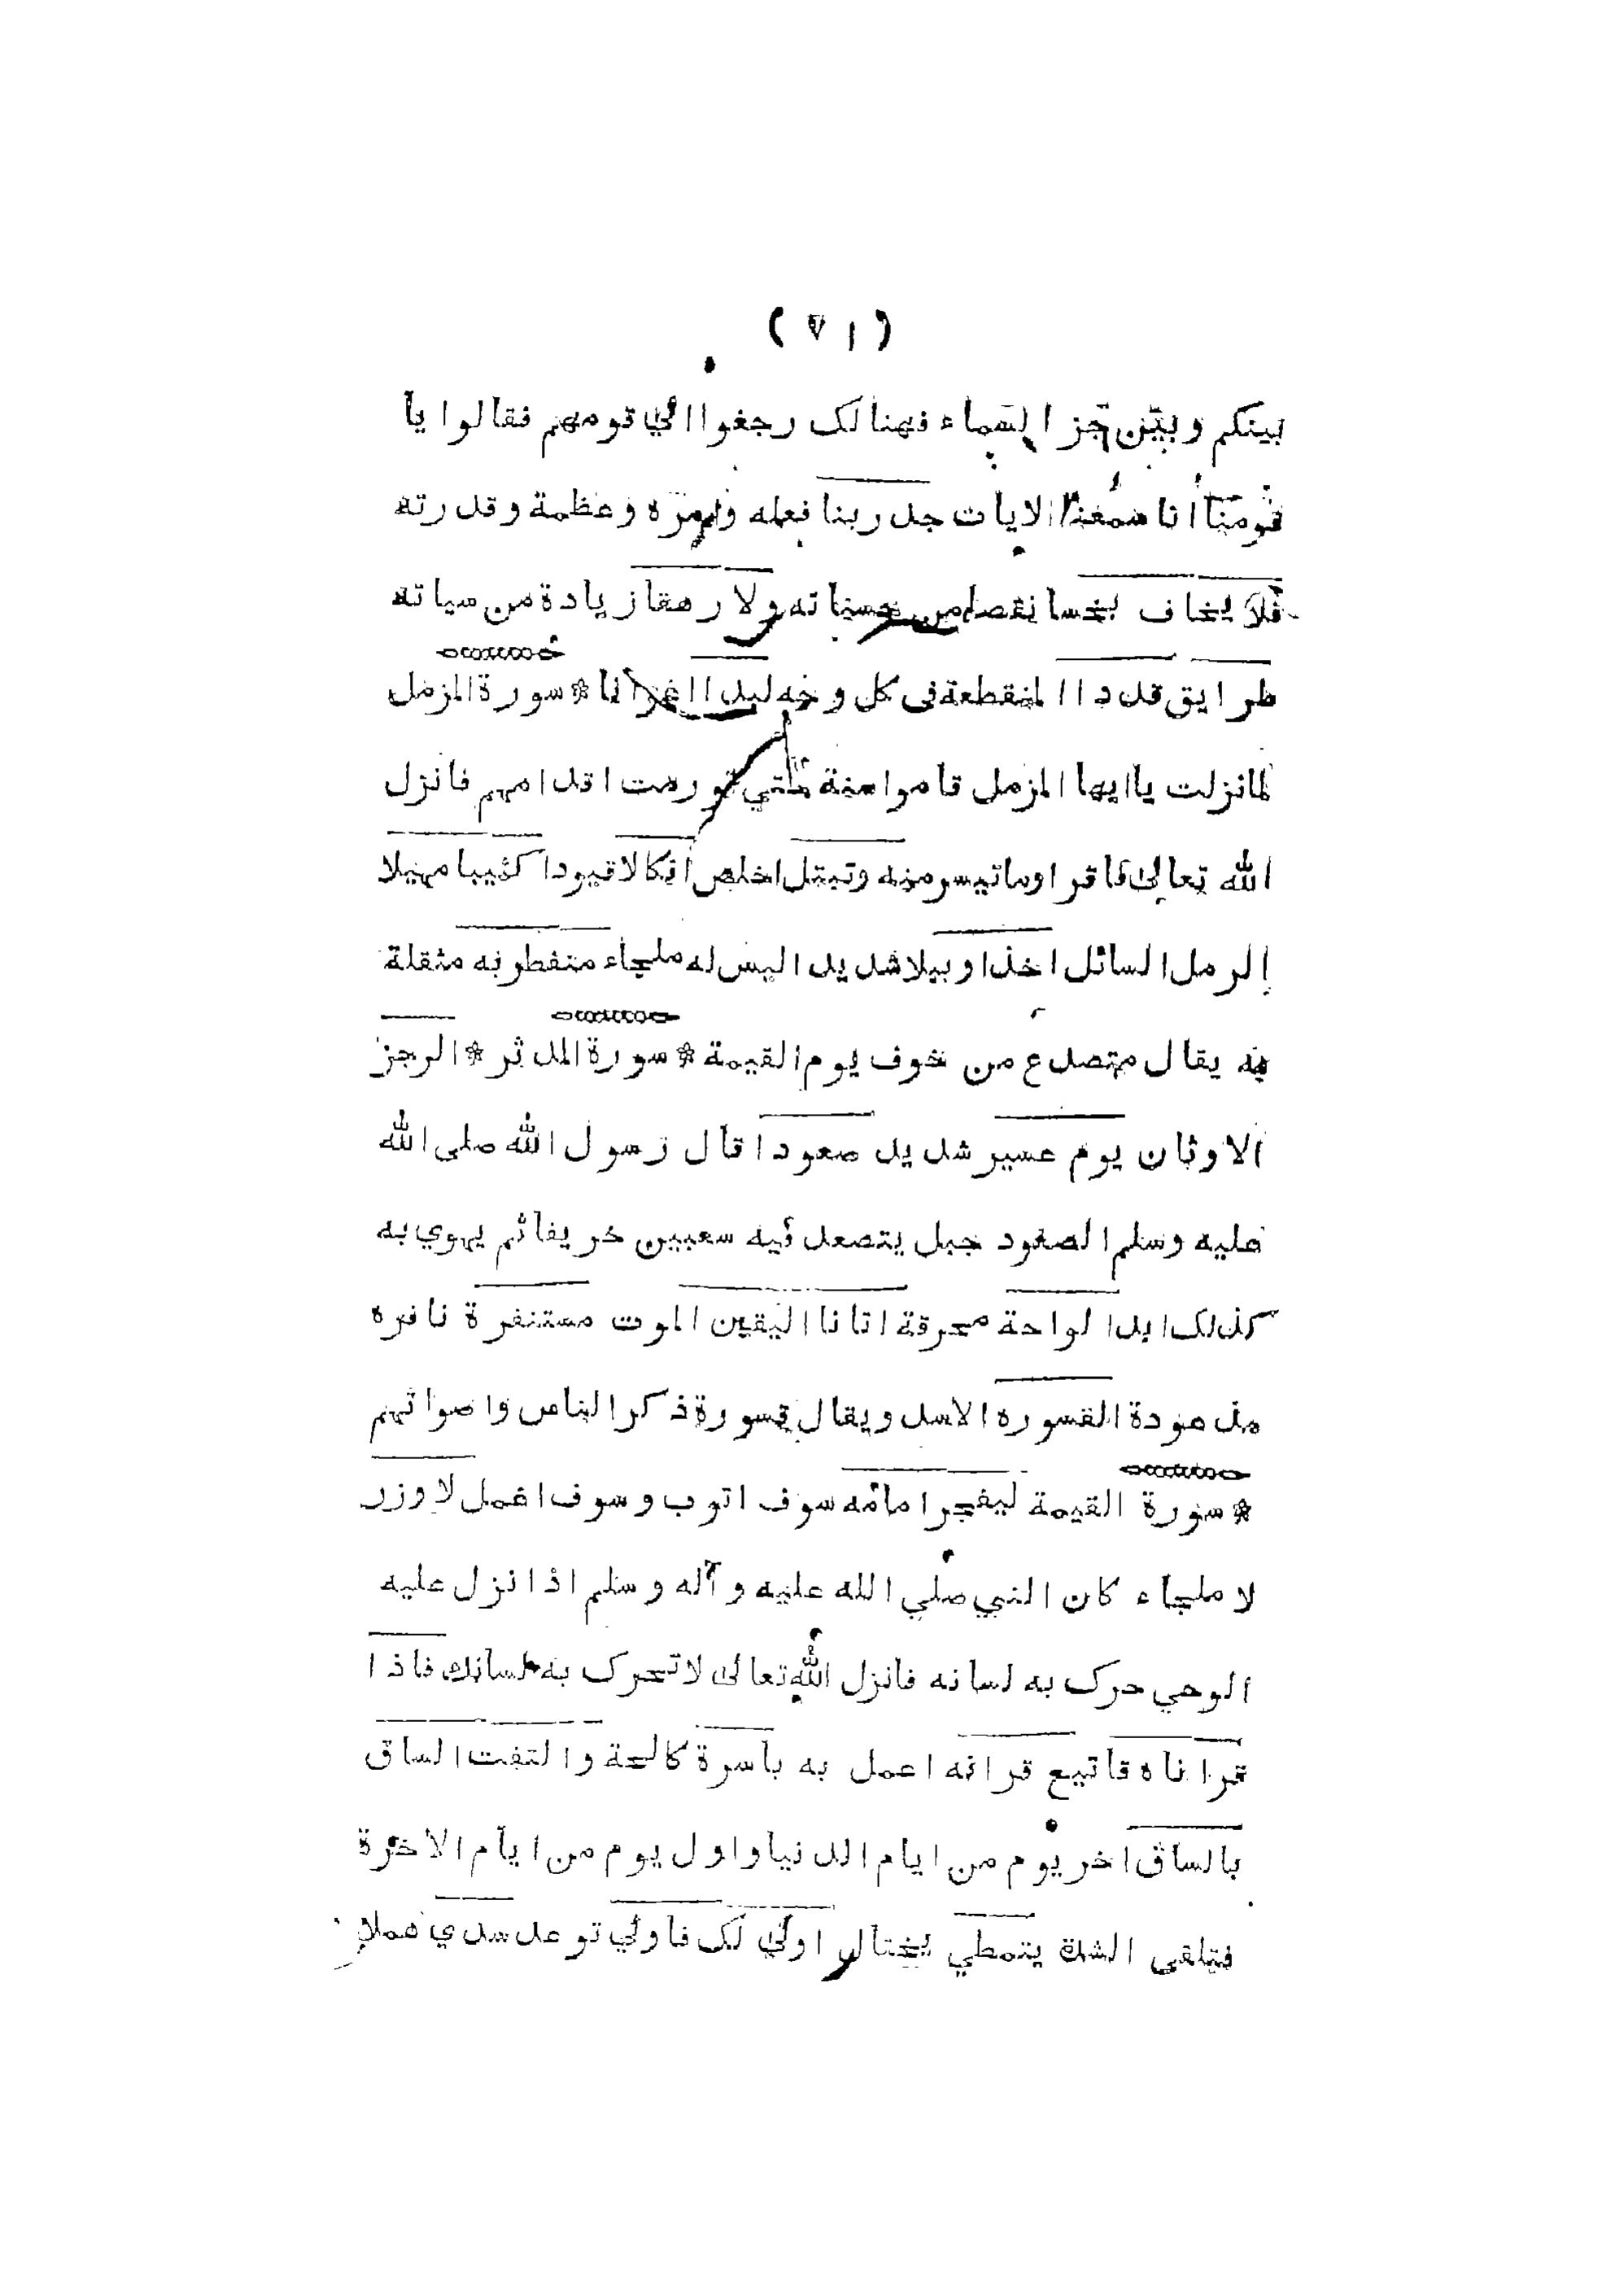 ( ٧١ )
بينكم وبين خبر السماء فهنالك رجعوا الي قومهم فقالوا يا
قومنا انا سمعنا الايات جد ربنا فعله وامره وعظمة وقدرته
فلا يخاف بخسا نقصا من حسناته ولا رهقا زيادة من سياته
طرايق قددا المنقطعة في كل وجه لبدا اعوانا * سورة المزمل
لما نزلت ياايها المزمل قاموا سنة حتي تورمت اقدامهم فانزل
الله تعالى فاقراوما تيسر منه وتبتل اخلص انكالا قيودا كثيبا مهيلا
الرمل السائل اخذا وبيلا شديدا ليس له ملجاء منفطر به مثقلة
به يقال متصدع من خوف يوم القيمة * سورة المدثر * الرجز
الاوثان يوم عسير شديد صعودا قال رسول الله صلى الله
عليه وسلم الصعود جبل يتصعد فيه سعبين خريفا ثم يهوي به
كذلك ابدا لواحة محرقة اتانا اليقين الموت مستنفرة نافره
مذعودة القسوره الاسد ويقال قسورة ذكر الناس واصواتهم
* سورة القيمة ليفجر امامه سوف اتوب وسوف اعمل لا وزر
لا ملجاء كان النبي صلي الله عليه وآله وسلم اذا نزل عليه
الوحي حرك به لسانه فانزل الله تعالى لاتحرك به لسانك فاذا
قراناه فاتبع قرانه اعمل به باسرة كالحة والتفت الساق
بالساق اخر يوم من ايام الدنيا واول يوم من ايام الاخرة
فتلقى الشدة يتمطي يختال اولي لك فاولي توعد سدي هملا